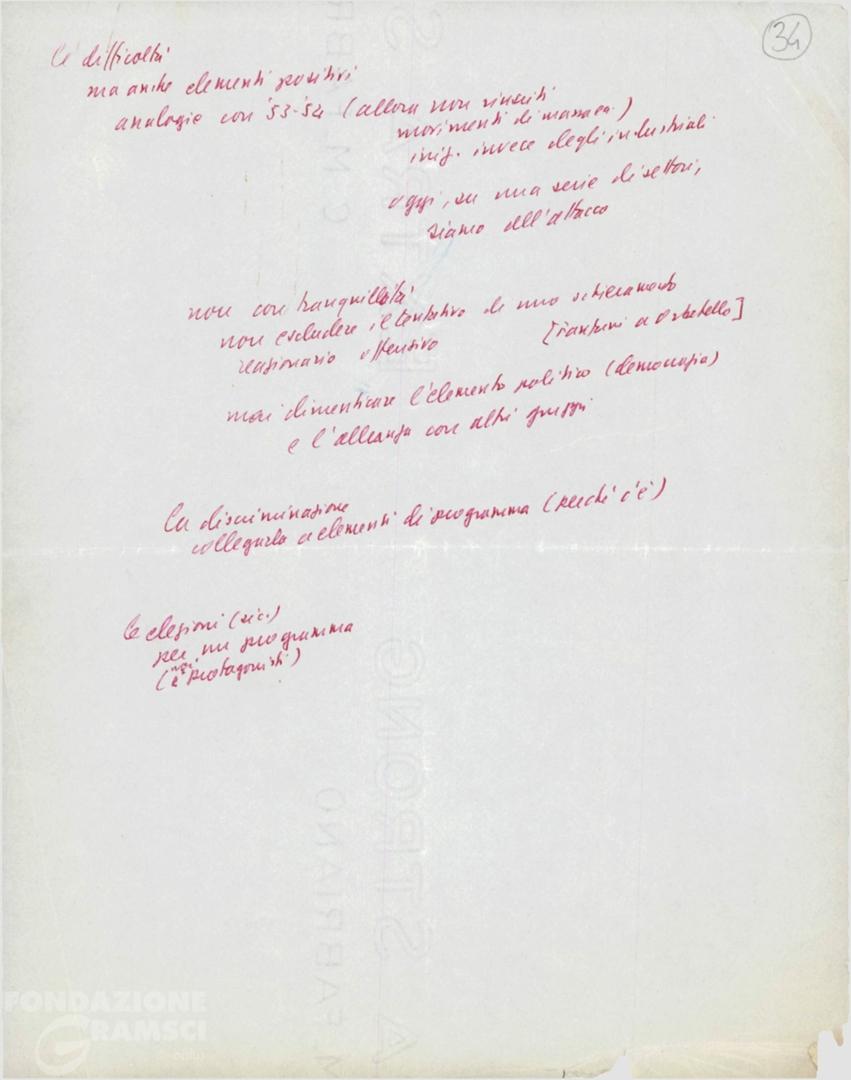 34
le difficoltà
ma anche elementi positivi
analogie con '53-'54 (allora non riusciti
movimenti di massa)
iniz. invece degli industriali
oggi, su una serie di settori,
siamo all'attacco
non con tranquillità
non escludere il tentativo di uno schieramento
reazionario offensivo [Fanfani a Orbetello]
mai dimenticare l'elemento politico (democrazia)
e l'alleanza con altri gruppi
la discriminazione
collegarla a elementi di programma (perché c'è)
le elezioni (sic.)
per un programma
(noi protagonisti)
C. M. FABR
EXTRA S
M. FABRIANO
A STRONG
FONDAZIONE
GRAMSCI
onlus